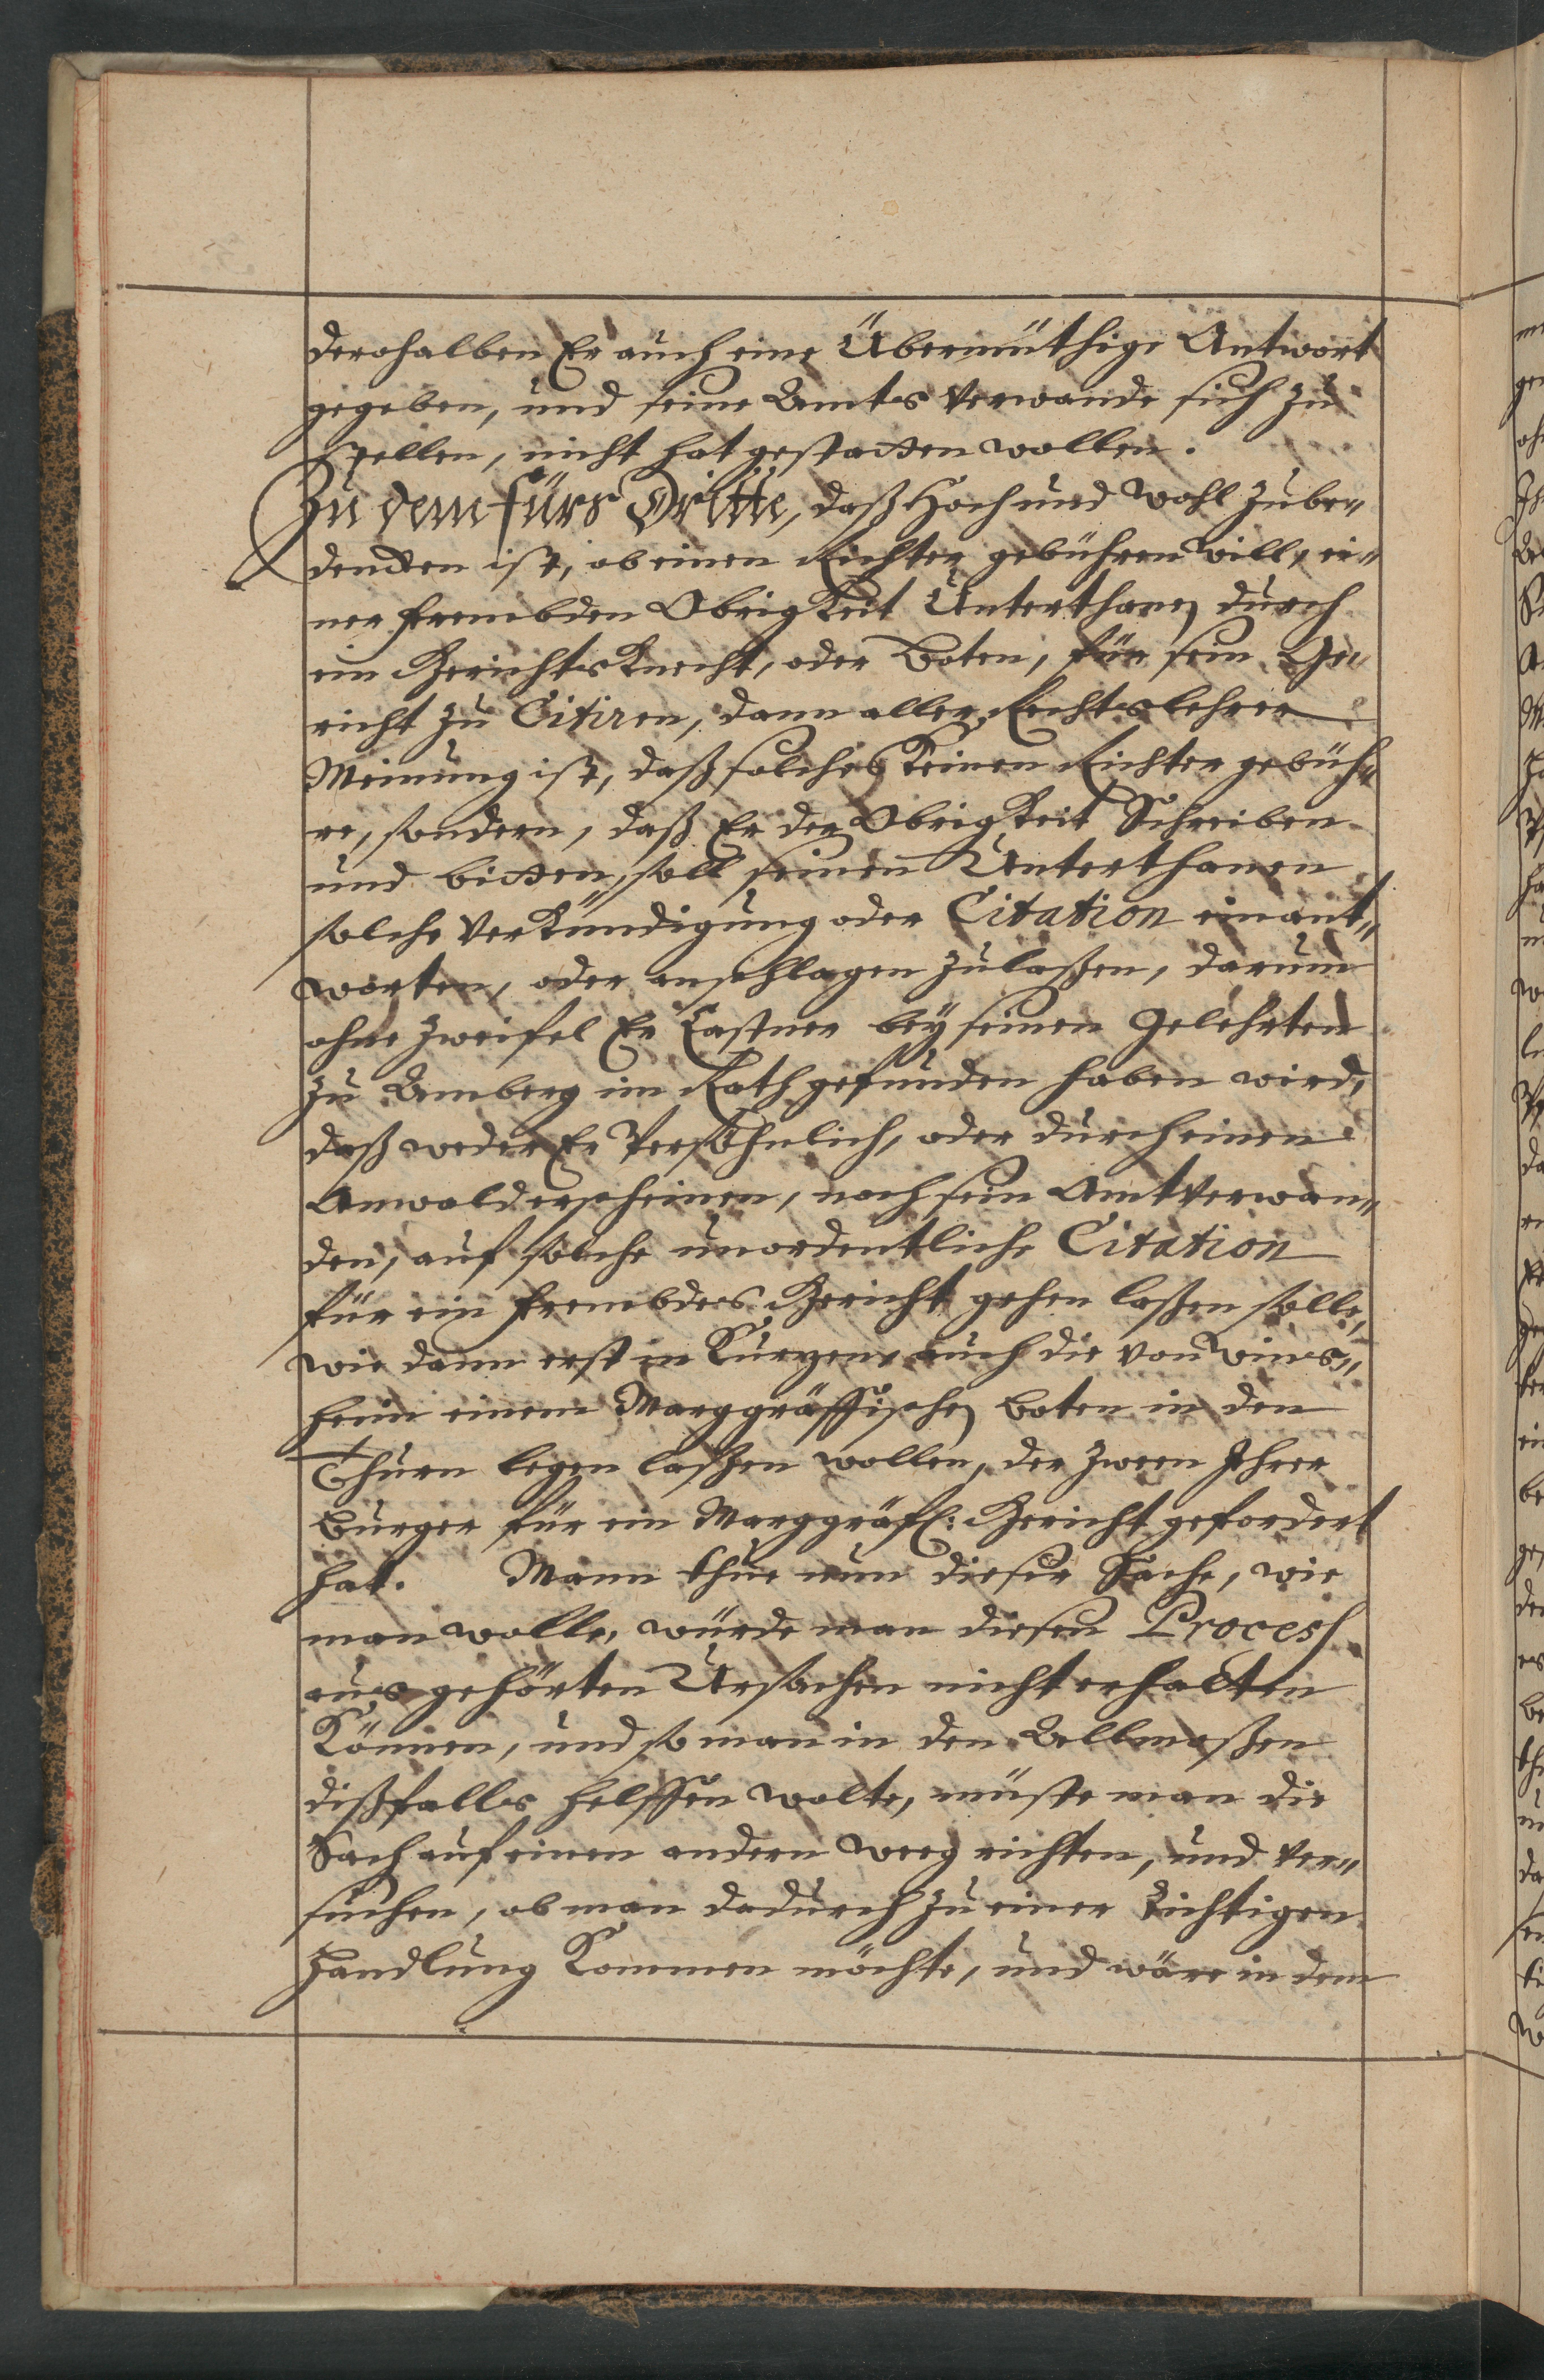 derohalben Er auch eine Übermüthige Antwort
gegeben, und seine Amts Verwande sich zu
stellen, nicht hat gestatten wollen.
Zu dem fürs Dritte, daß Hoch und Wohl zube„
dencken ist, ob einen Richter gebühren will, ei„
ner frembden Obrigkeit Unterthanen durch
ein Gerichts Knecht, oder Boten, für sein Ge„
richt zu Citiren, dann aller Rechtslehrer
Meinung ist, daß solches keinen Richter gebüh„
re, sondern, daß Er der Obrigkeit Schreiben
und bitten, soll seinen Unterthanen
solche Verkündigung oder Citation einant„
worten, oder anschlagen zulaßen, darum
ohne Zweifel Er Castner bey seinen Gelehrten
zu Amberg im Rath gefunden haben wird,
daß weder Er Persöhnlich, oder durch einen
Anwald erscheinen, noch sein Amt Verwan„
den, auf solche unordentliche Citation
für ein frembdes Gericht gehen laßen solle,
wie dann erst in Kurzen, auch die von Wins„
heim einem Marggräffischen Boten in den
Thurn legen laßen wollen, der zween Ihrer
Burger für ein Marggräfl: Gericht gefordert
hat. Mann thue nun dieser Sache, wie
man wolle, würde man diesen Process
aus gehörten Ursachen nicht erhalten
Können, und so man in den Allmaßen
dißfalls helffen wolte, müste man die
Sach auf einen andern weeg richten, und ver„
suchen, ob man dadurch zu einer Richtigen
Handlung Kommen möchte, und wäre in dem